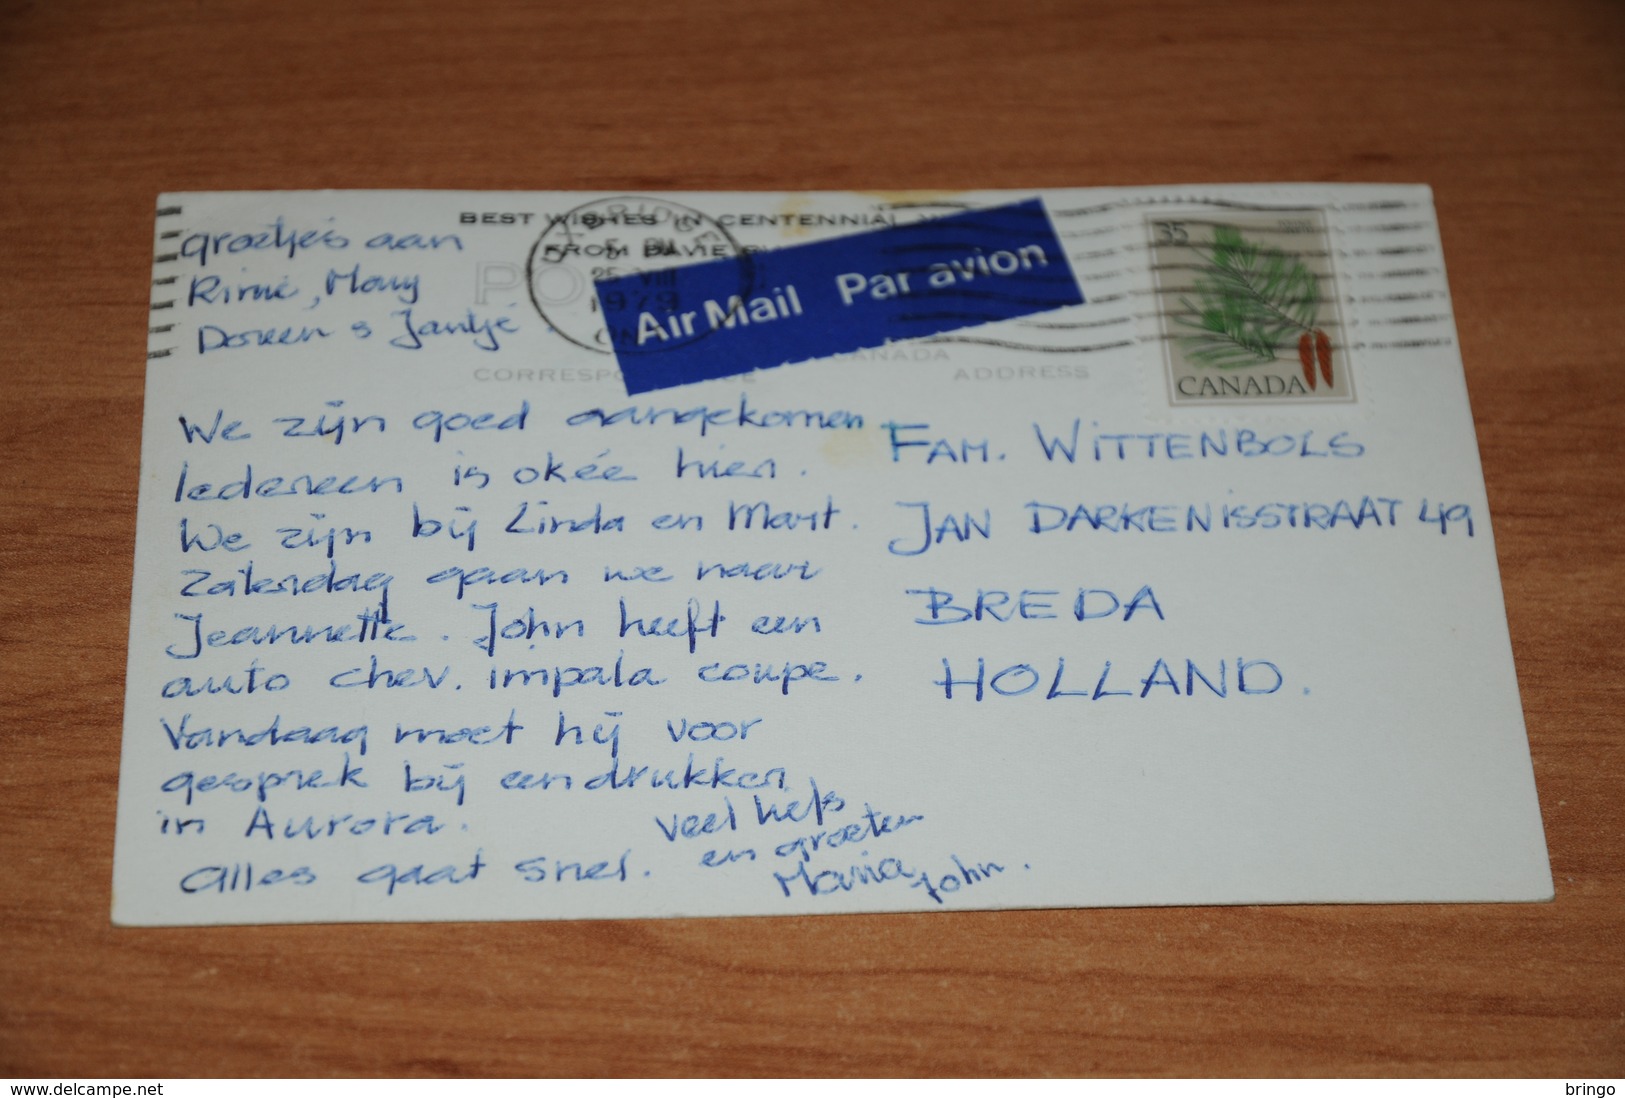 BEST WISHES IN CENTENNIAL
FROM DAVIE
5 PM
25 VIII
1979
ONT
Air Mail Par avion
35
CANADA
CANADA
ADDRESS
groetjes aan
Rinie, Mary
Doreen & Jantje
We zijn goed aangekomen
Iedereen is okée hier.
We zijn bij Linda en Mart.
Zaterdag gaan we naar
Jeannette. John heeft een
auto chev. impala coupe.
Vandaag moet hij voor
gesprek bij een drukker
in Aurora.
Alles gaat snel.
Veel liefs
en groeten
Maria John.
FAM. WITTENBOLS
JAN DARKENISSTRAAT 49
BREDA
HOLLAND.
delcampe.net
bringo